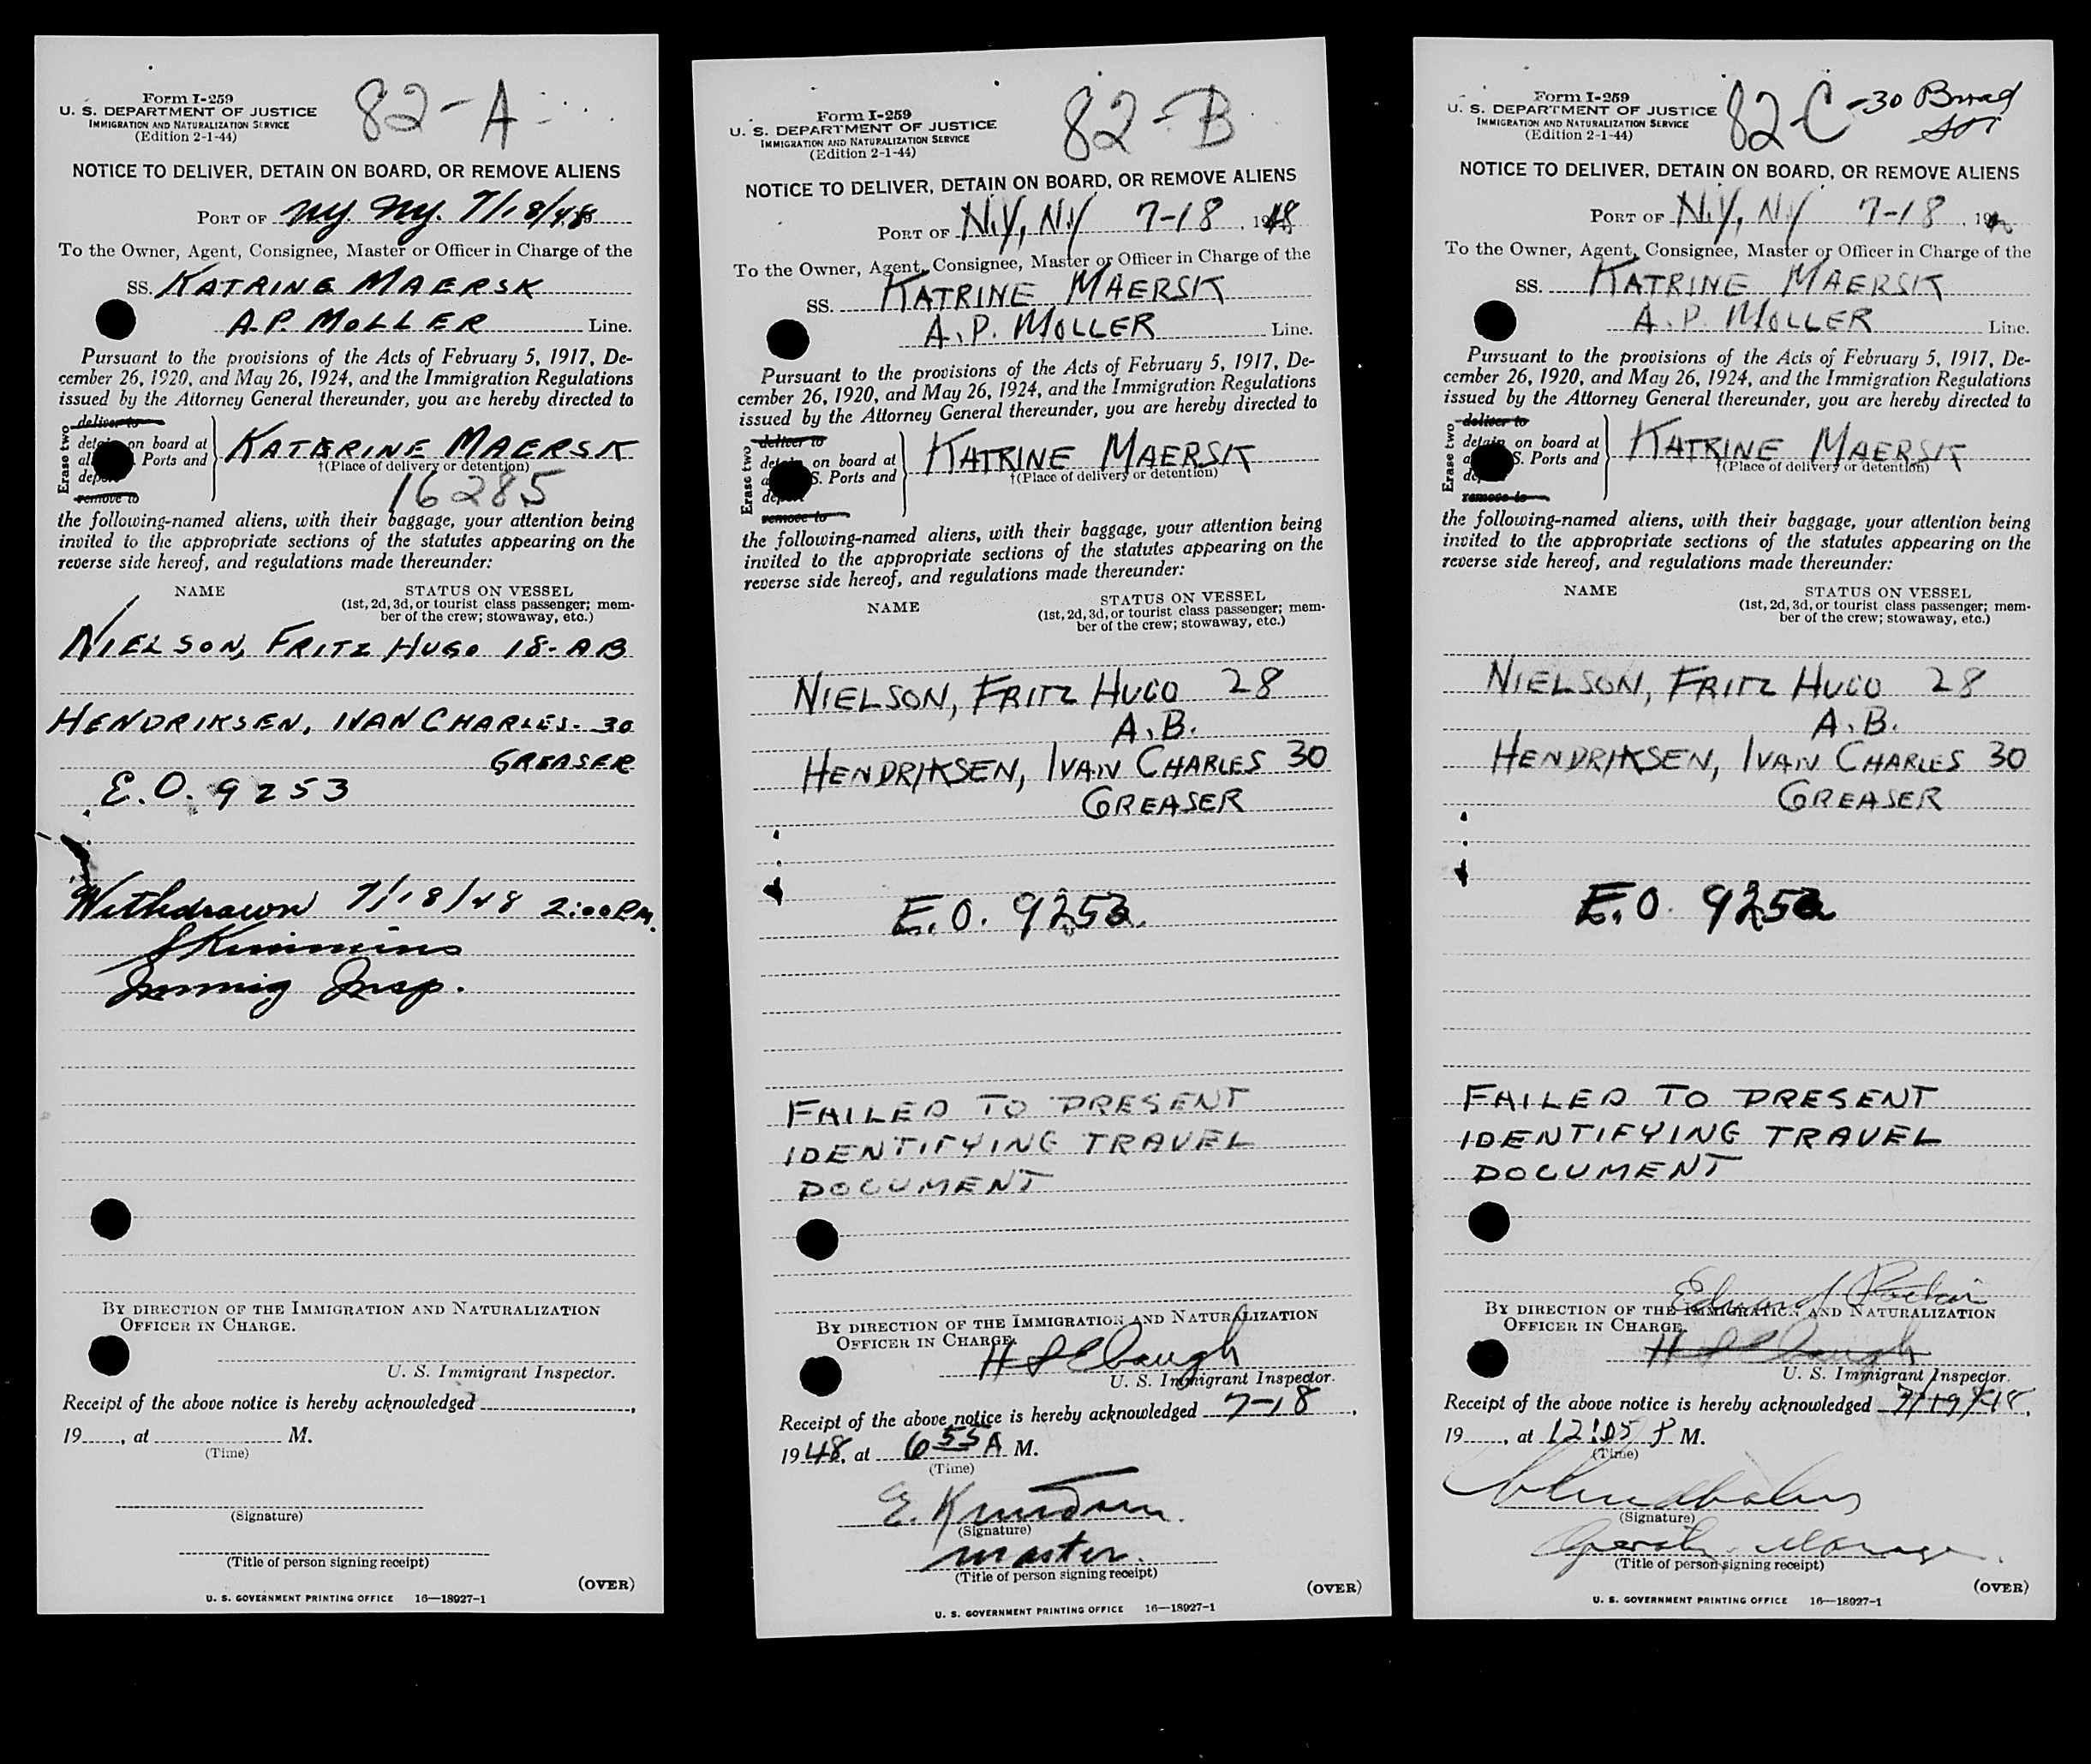 Form I-259
U. S. DEPARTMENT OF JUSTICE
IMMIGRATION AND NATURALIZATION SERVICE
(Edition 2-1-44)
82-A
NOTICE TO DELIVER, DETAIN ON BOARD, OR REMOVE ALIENS
PORT OF NY. NY. 7/18/48
To the Owner, Agent, Consignee, Master or Officer in Charge of the
SS. KATRINE MAERSK
A.P. MOLLER Line.
Pursuant to the provisions of the Acts of February 5, 1917, De-
cember 26, 1920, and May 26, 1924, and the Immigration Regulations
issued by the Attorney General thereunder, you are hereby directed to
Erase two
deliver to
on board at
Ports and
remove to
KATARINE MAERSK
†(Place of delivery or detention)
16285
the following-named aliens, with their baggage, your attention being
invited to the appropriate sections of the statutes appearing on the
reverse side hereof, and regulations made thereunder:
NAME
STATUS ON VESSEL
(1st, 2d, 3d, or tourist class passenger; mem-
ber of the crew; stowaway, etc.)
NIELSON, FRITZ HUGO 18-AB
HENDRIKSEN, IVAN CHARLES- 30
GREASER
E.O. 9253
Withdrawn 7/18/48 2:00 P.M.
Immig Insp.
BY DIRECTION OF THE IMMIGRATION AND NATURALIZATION
OFFICER IN CHARGE.
U. S. Immigrant Inspector.
Receipt of the above notice is hereby acknowledged
19 , at M.
(Time)
(Signature)
(Title of person signing receipt)
(OVER)
U. S. GOVERNMENT PRINTING OFFICE 16—18927-1
Form I-259
U. S. DEPARTMENT OF JUSTICE
IMMIGRATION AND NATURALIZATION SERVICE
(Edition 2-1-44)
82-B
NOTICE TO DELIVER, DETAIN ON BOARD, OR REMOVE ALIENS
PORT OF N.Y, N.Y 7-18, 1948
To the Owner, Agent, Consignee, Master or Officer in Charge of the
SS. KATRINE MAERSK
A.P. MOLLER Line.
Pursuant to the provisions of the Acts of February 5, 1917, De-
cember 26, 1920, and May 26, 1924, and the Immigration Regulations
issued by the Attorney General thereunder, you are hereby directed to
Erase two
deliver to
on board at
S. Ports and
remove to
KATRINE MAERSK
†(Place of delivery or detention)
the following-named aliens, with their baggage, your attention being
invited to the appropriate sections of the statutes appearing on the
reverse side hereof, and regulations made thereunder:
NAME
STATUS ON VESSEL
(1st, 2d, 3d, or tourist class passenger; mem-
ber of the crew; stowaway, etc.)
NIELSON, FRITZ HUGO 28
A.B.
HENDRIKSEN, IVAN CHARLES 30
GREASER
E.O. 9253
FAILED TO PRESENT
IDENTIFYING TRAVEL
DOCUMENT
BY DIRECTION OF THE IMMIGRATION AND NATURALIZATION
OFFICER IN CHARGE.
U. S. Immigrant Inspector.
Receipt of the above notice is hereby acknowledged 7-18,
1948, at 655 A M.
(Time)
E. Knudsen
(Signature)
master.
(Title of person signing receipt)
(OVER)
U. S. GOVERNMENT PRINTING OFFICE 16—18927-1
Form I-259
U. S. DEPARTMENT OF JUSTICE
IMMIGRATION AND NATURALIZATION SERVICE
(Edition 2-1-44)
82-C -30 Broad
NOTICE TO DELIVER, DETAIN ON BOARD, OR REMOVE ALIENS
PORT OF N.Y, N.Y 7-18, 19
To the Owner, Agent, Consignee, Master or Officer in Charge of the
SS. KATRINE MAERSK
A.P. MOLLER Line.
Pursuant to the provisions of the Acts of February 5, 1917, De-
cember 26, 1920, and May 26, 1924, and the Immigration Regulations
issued by the Attorney General thereunder, you are hereby directed to
Erase two
deliver to
detain on board at
S. Ports and
remove to
KATRINE MAERSK
†(Place of delivery or detention)
the following-named aliens, with their baggage, your attention being
invited to the appropriate sections of the statutes appearing on the
reverse side hereof, and regulations made thereunder:
NAME
STATUS ON VESSEL
(1st, 2d, 3d, or tourist class passenger; mem-
ber of the crew; stowaway, etc.)
NIELSON, FRITZ HUGO 28
A.B.
HENDRIKSEN, IVAN CHARLES 30
GREASER
E.O. 9253
FAILED TO PRESENT
IDENTIFYING TRAVEL
DOCUMENT
Edward
BY DIRECTION OF THE IMMIGRATION AND NATURALIZATION
OFFICER IN CHARGE.
U. S. Immigrant Inspector.
Receipt of the above notice is hereby acknowledged 7/19/48,
19 , at 12:05 P M.
(Time)
(Signature)
Manager
(Title of person signing receipt)
(OVER)
U. S. GOVERNMENT PRINTING OFFICE 16—18927-1